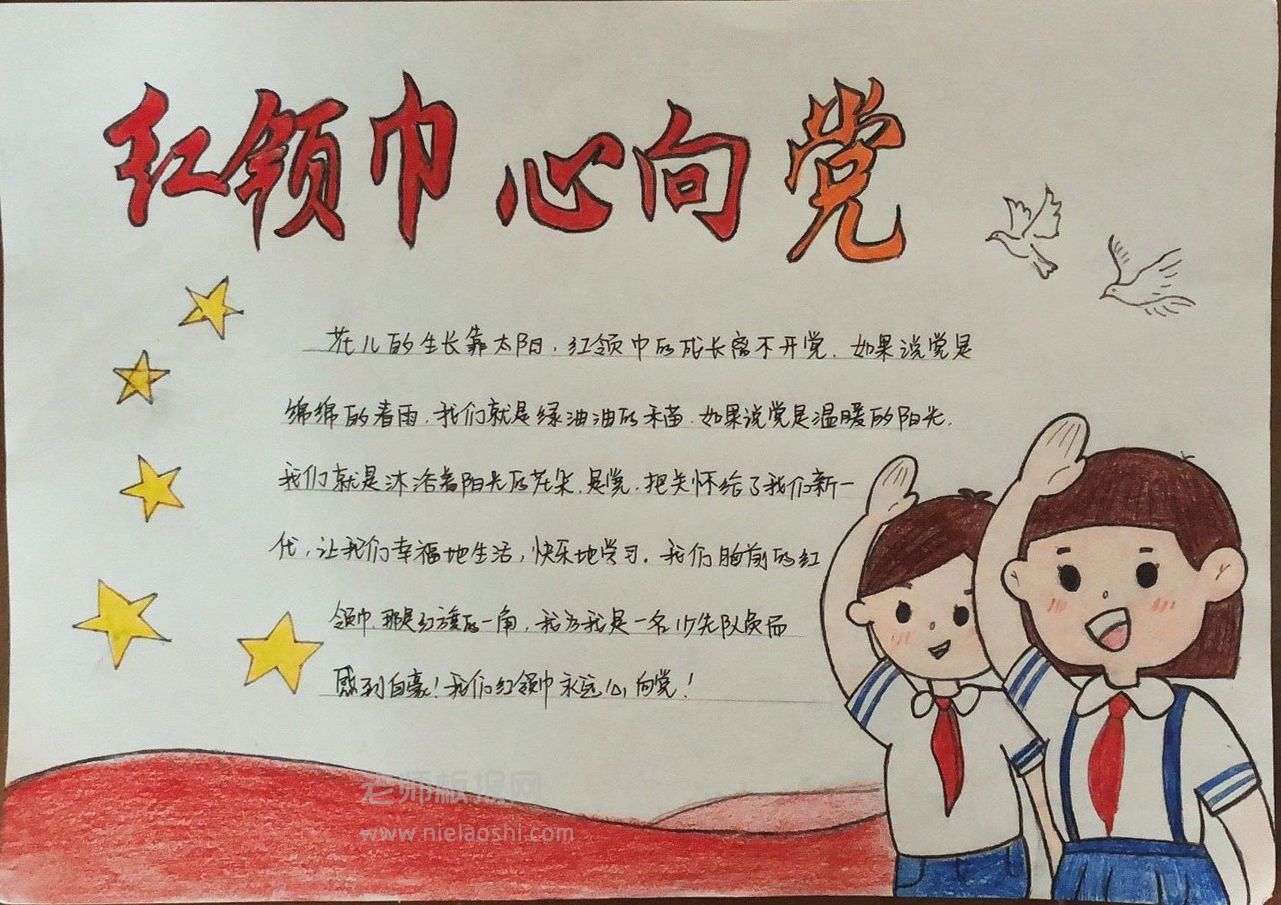 红领巾 心向党
花儿的生长靠太阳,红领巾的成长离不开党.如果说党是
绵绵的春雨.我们就是绿油油的禾苗.如果说党是温暖的阳光.
我们就是沐浴着阳光的花朵.是党.把关怀给了我们新一
代,让我们幸福地生活,快乐地学习.我们胸前的红
领巾那是红旗的一角,我为我是一名少先队员而
感到自豪!我们红领巾永远心向党!
老师板报网
www.nielaoshi.com